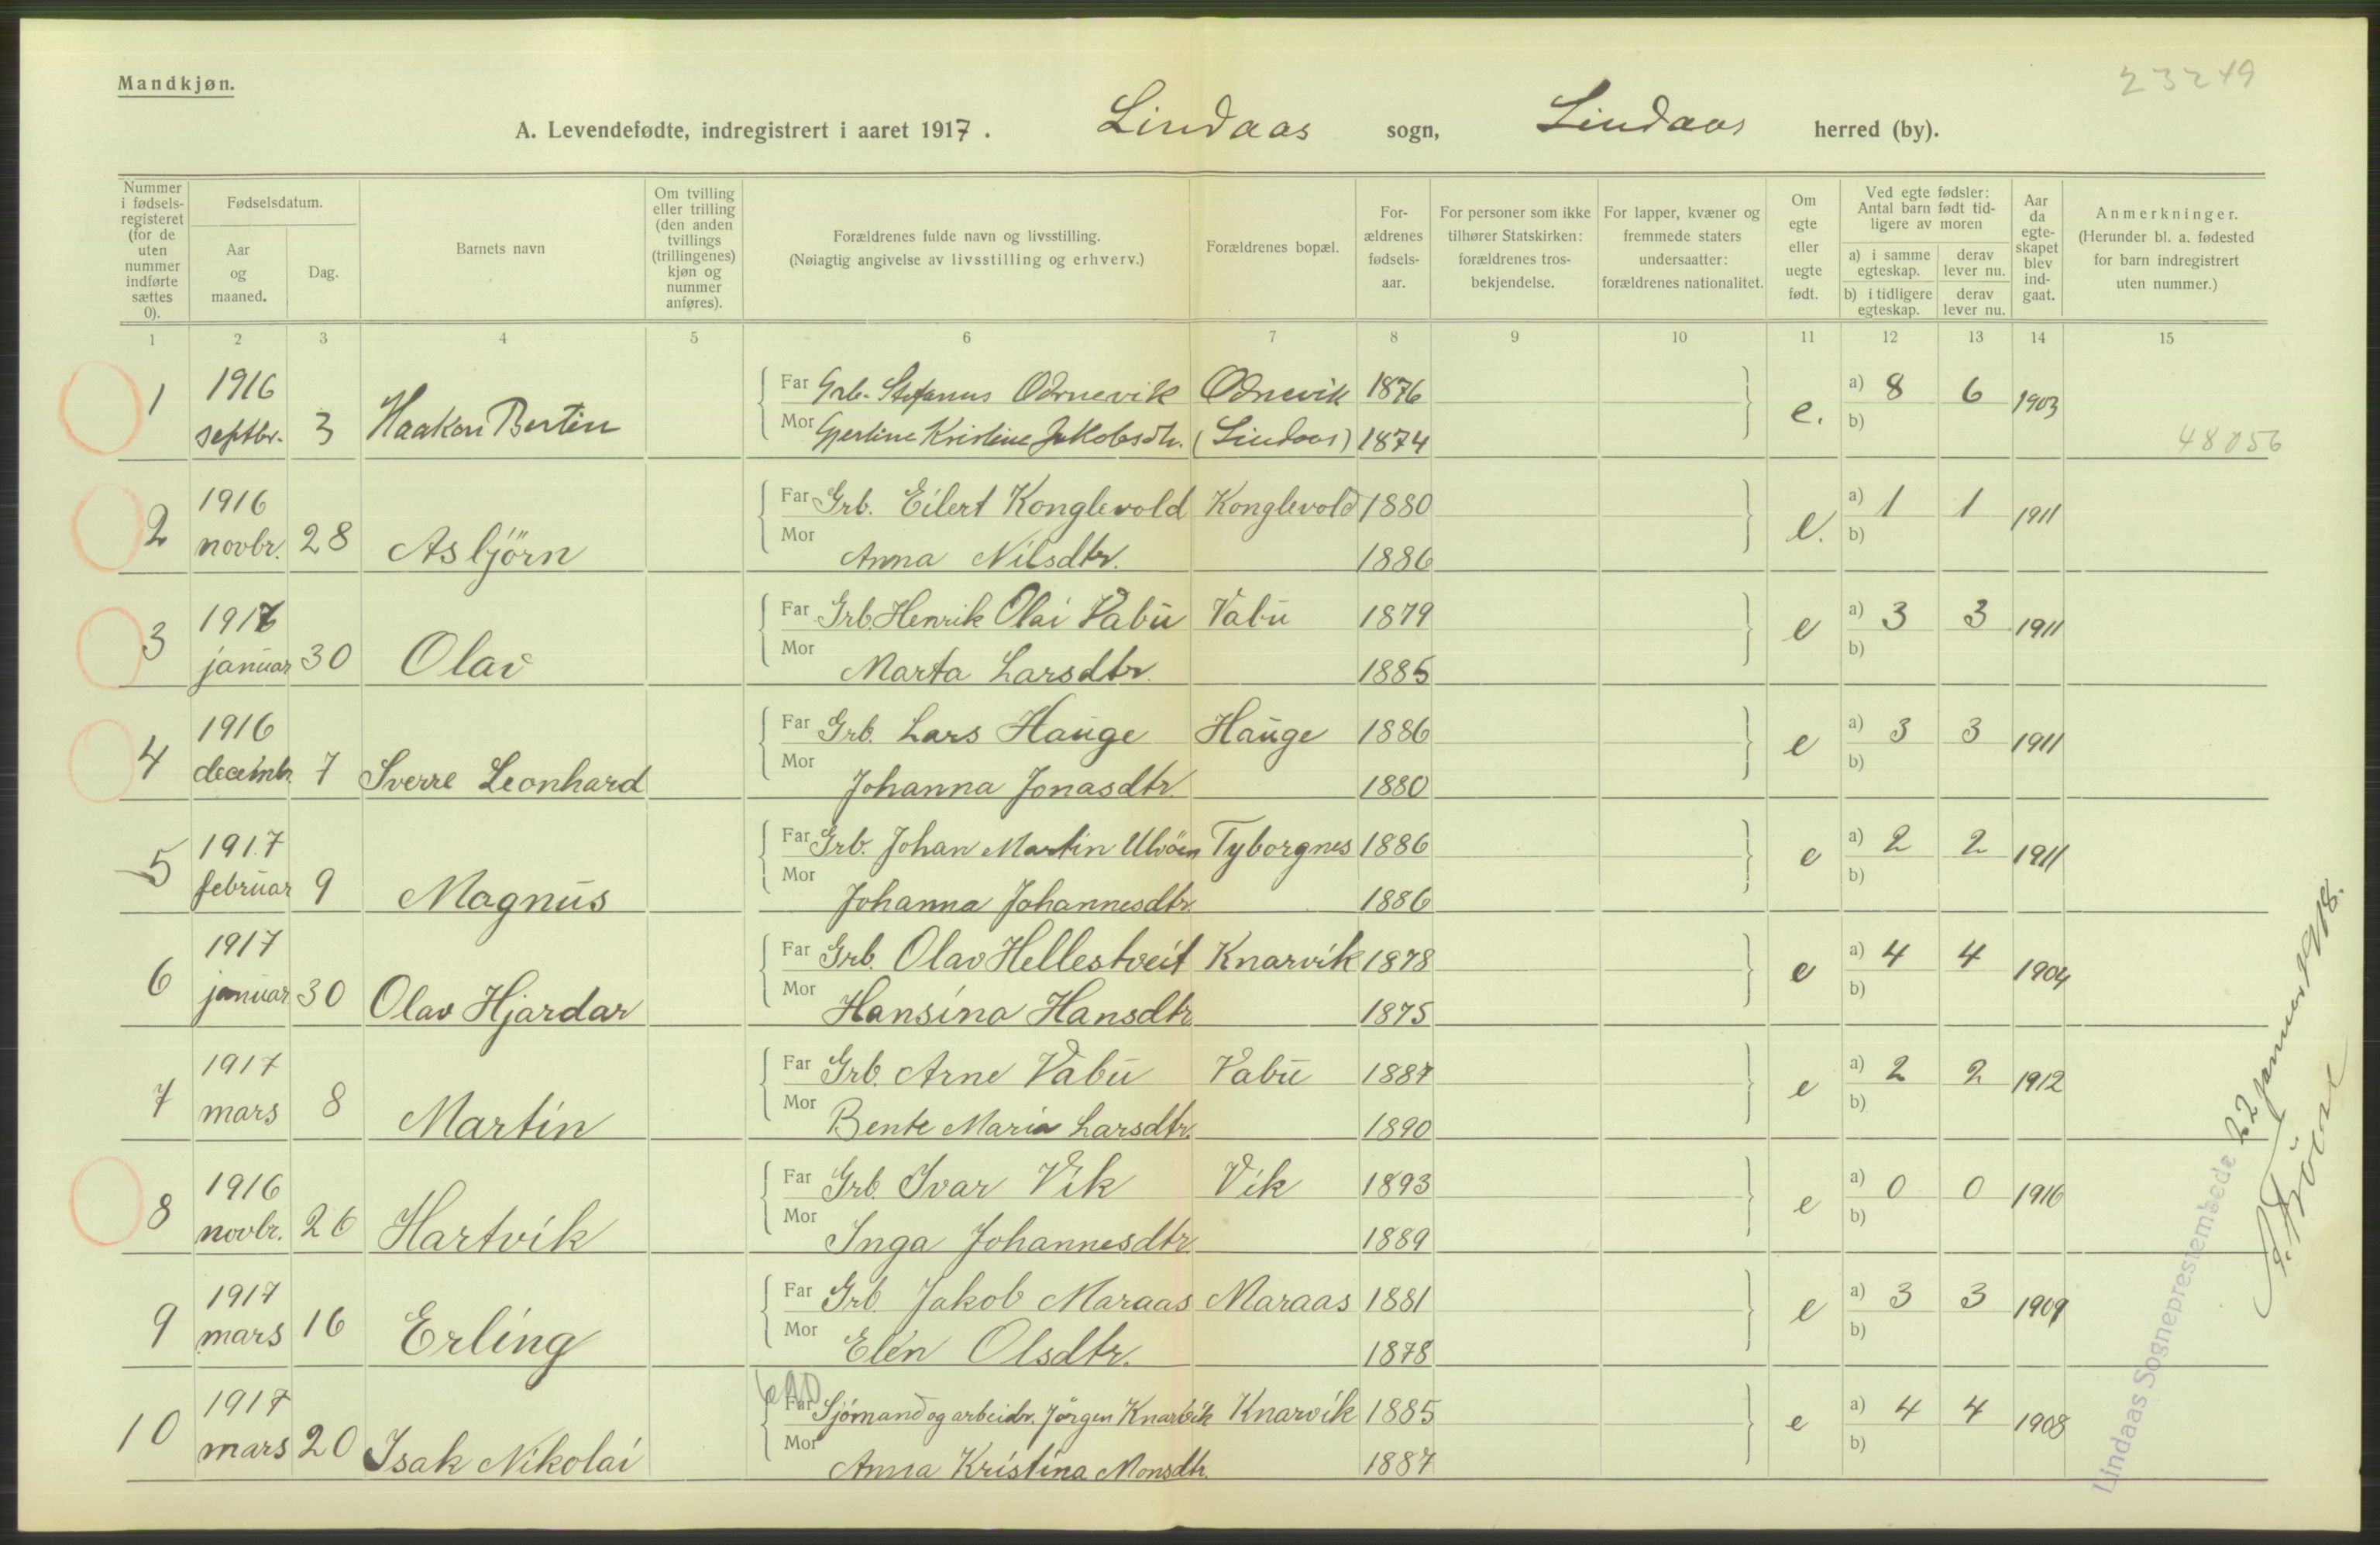 Mandkjøn.
23249
A. Levendefødte, indregistrert i aaret 1917. Lindaas sogn, Lindaas herred (by).
Nummer i fødsels-registeret (for de uten nummer indførte sættes 0).
Fødselsdatum.
Aar og maaned.
Dag.
Barnets navn
Om tvilling eller trilling (den anden tvillings (trillingenes) kjøn og nummer anføres).
Forældrenes fulde navn og livsstilling. (Nøiagtig angivelse av livsstilling og erhverv.)
Forældrenes bopæl.
For-ældrenes fødsels-aar.
For personer som ikke tilhører Statskirken: forældrenes tros-bekjendelse.
For lapper, kvæner og fremmede staters undersaatter: forældrenes nationalitet.
Om egte eller uegte født.
Ved egte fødsler: Antal barn født tid-ligere av moren
a) i samme egteskap. derav lever nu.
b) i tidligere egteskap. derav lever nu.
Aar da egte-skapet blev ind-gaat.
Anmerkninger. (Herunder bl. a. fødested for barn indregistrert uten nummer.)
1 2 3 4 5 6 7 8 9 10 11 12 13 14 15
1 1916 Far Grb. Stefanus Odnevik Odnevik 1876 a) 8 6 1903
septbr. 3 Haakon Bertin Mor Gjertine Kristine Jakobsdtr. (Lindaas) 1874 e. b) 48056
2 1916 Far Grb. Eilert Konglevold Konglevold 1880 a) 1 1 1911
novbr. 28 Asbjörn Mor Anna Nilsdtr. 1886 e. b)
3 1917 Far Grb. Henrik Olai Vabu Vabu 1879 a) 3 3 1911
januar 30 Olav Mor Marta Larsdtr. 1885 e b)
4 1916 Far Grb. Lars Hauge Hauge 1886 a) 3 3 1911
decembr. 7 Sverre Leonhard Mor Johanna Jonasdtr. 1880 e b)
5 1917 Far Grb. Johan Martin Ulvöen Tyborgnes 1886 a) 2 2 1911
februar 9 Magnus Mor Johanna Johannesdtr. 1886 e b)
6 1917 Far Grb. Olav Hellestveit Knarvik 1878 a) 4 4 1904
januar 30 Olav Hjardar Mor Hansina Hansdtr 1875 e b)
7 1917 Far Grb. Arne Vabu Vabu 1887 a) 2 2 1912
mars 8 Martin Mor Bente Maria Larsdtr. 1890 e b)
8 1916 Far Grb. Ivar Vik Vik 1893 a) 0 0 1916
novbr. 26 Hartvik Mor Inga Johannesdtr. 1889 e b)
9 1917 Far Grb. Jakob Maraas Maraas 1881 a) 3 3 1909
mars 16 Erling Mor Elen Olsdtr. 1878 e b)
10 1917 Far Sjömand og arbeidr. Jörgen Knarvik Knarvik 1885 a) 4 4 1908
mars 20 Isak Nikolai Mor Anna Kristina Monsdtr. 1887 e b)
Lindaas Sogneprestembede 22 januar 1918.